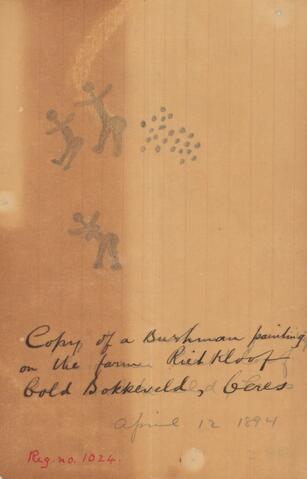 Copy of a Bushman painting
on the farm Rietkloof
Cold Bokkeveld, Ceres
April 12 1894
Reg. no. 1024.